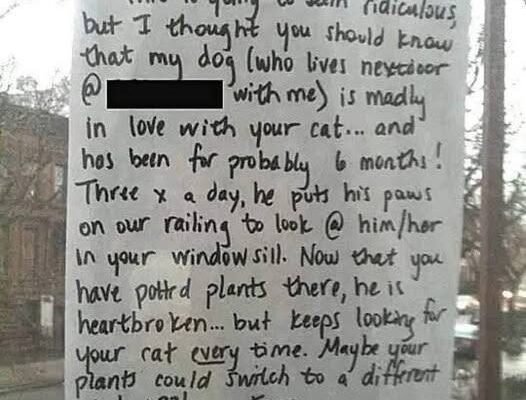 to seem ridiculous,
but I thought you should know
that my dog (who lives nextdoor
@ with me) is madly
in love with your cat... and
has been for probably 6 months!
Three x a day, he puts his paws
on our railing to look @ him/her
in your windowsill. Now that you
have pottrd plants there, he is
heartbroken... but keeps looking for
your cat every time. Maybe your
plants could switch to a different